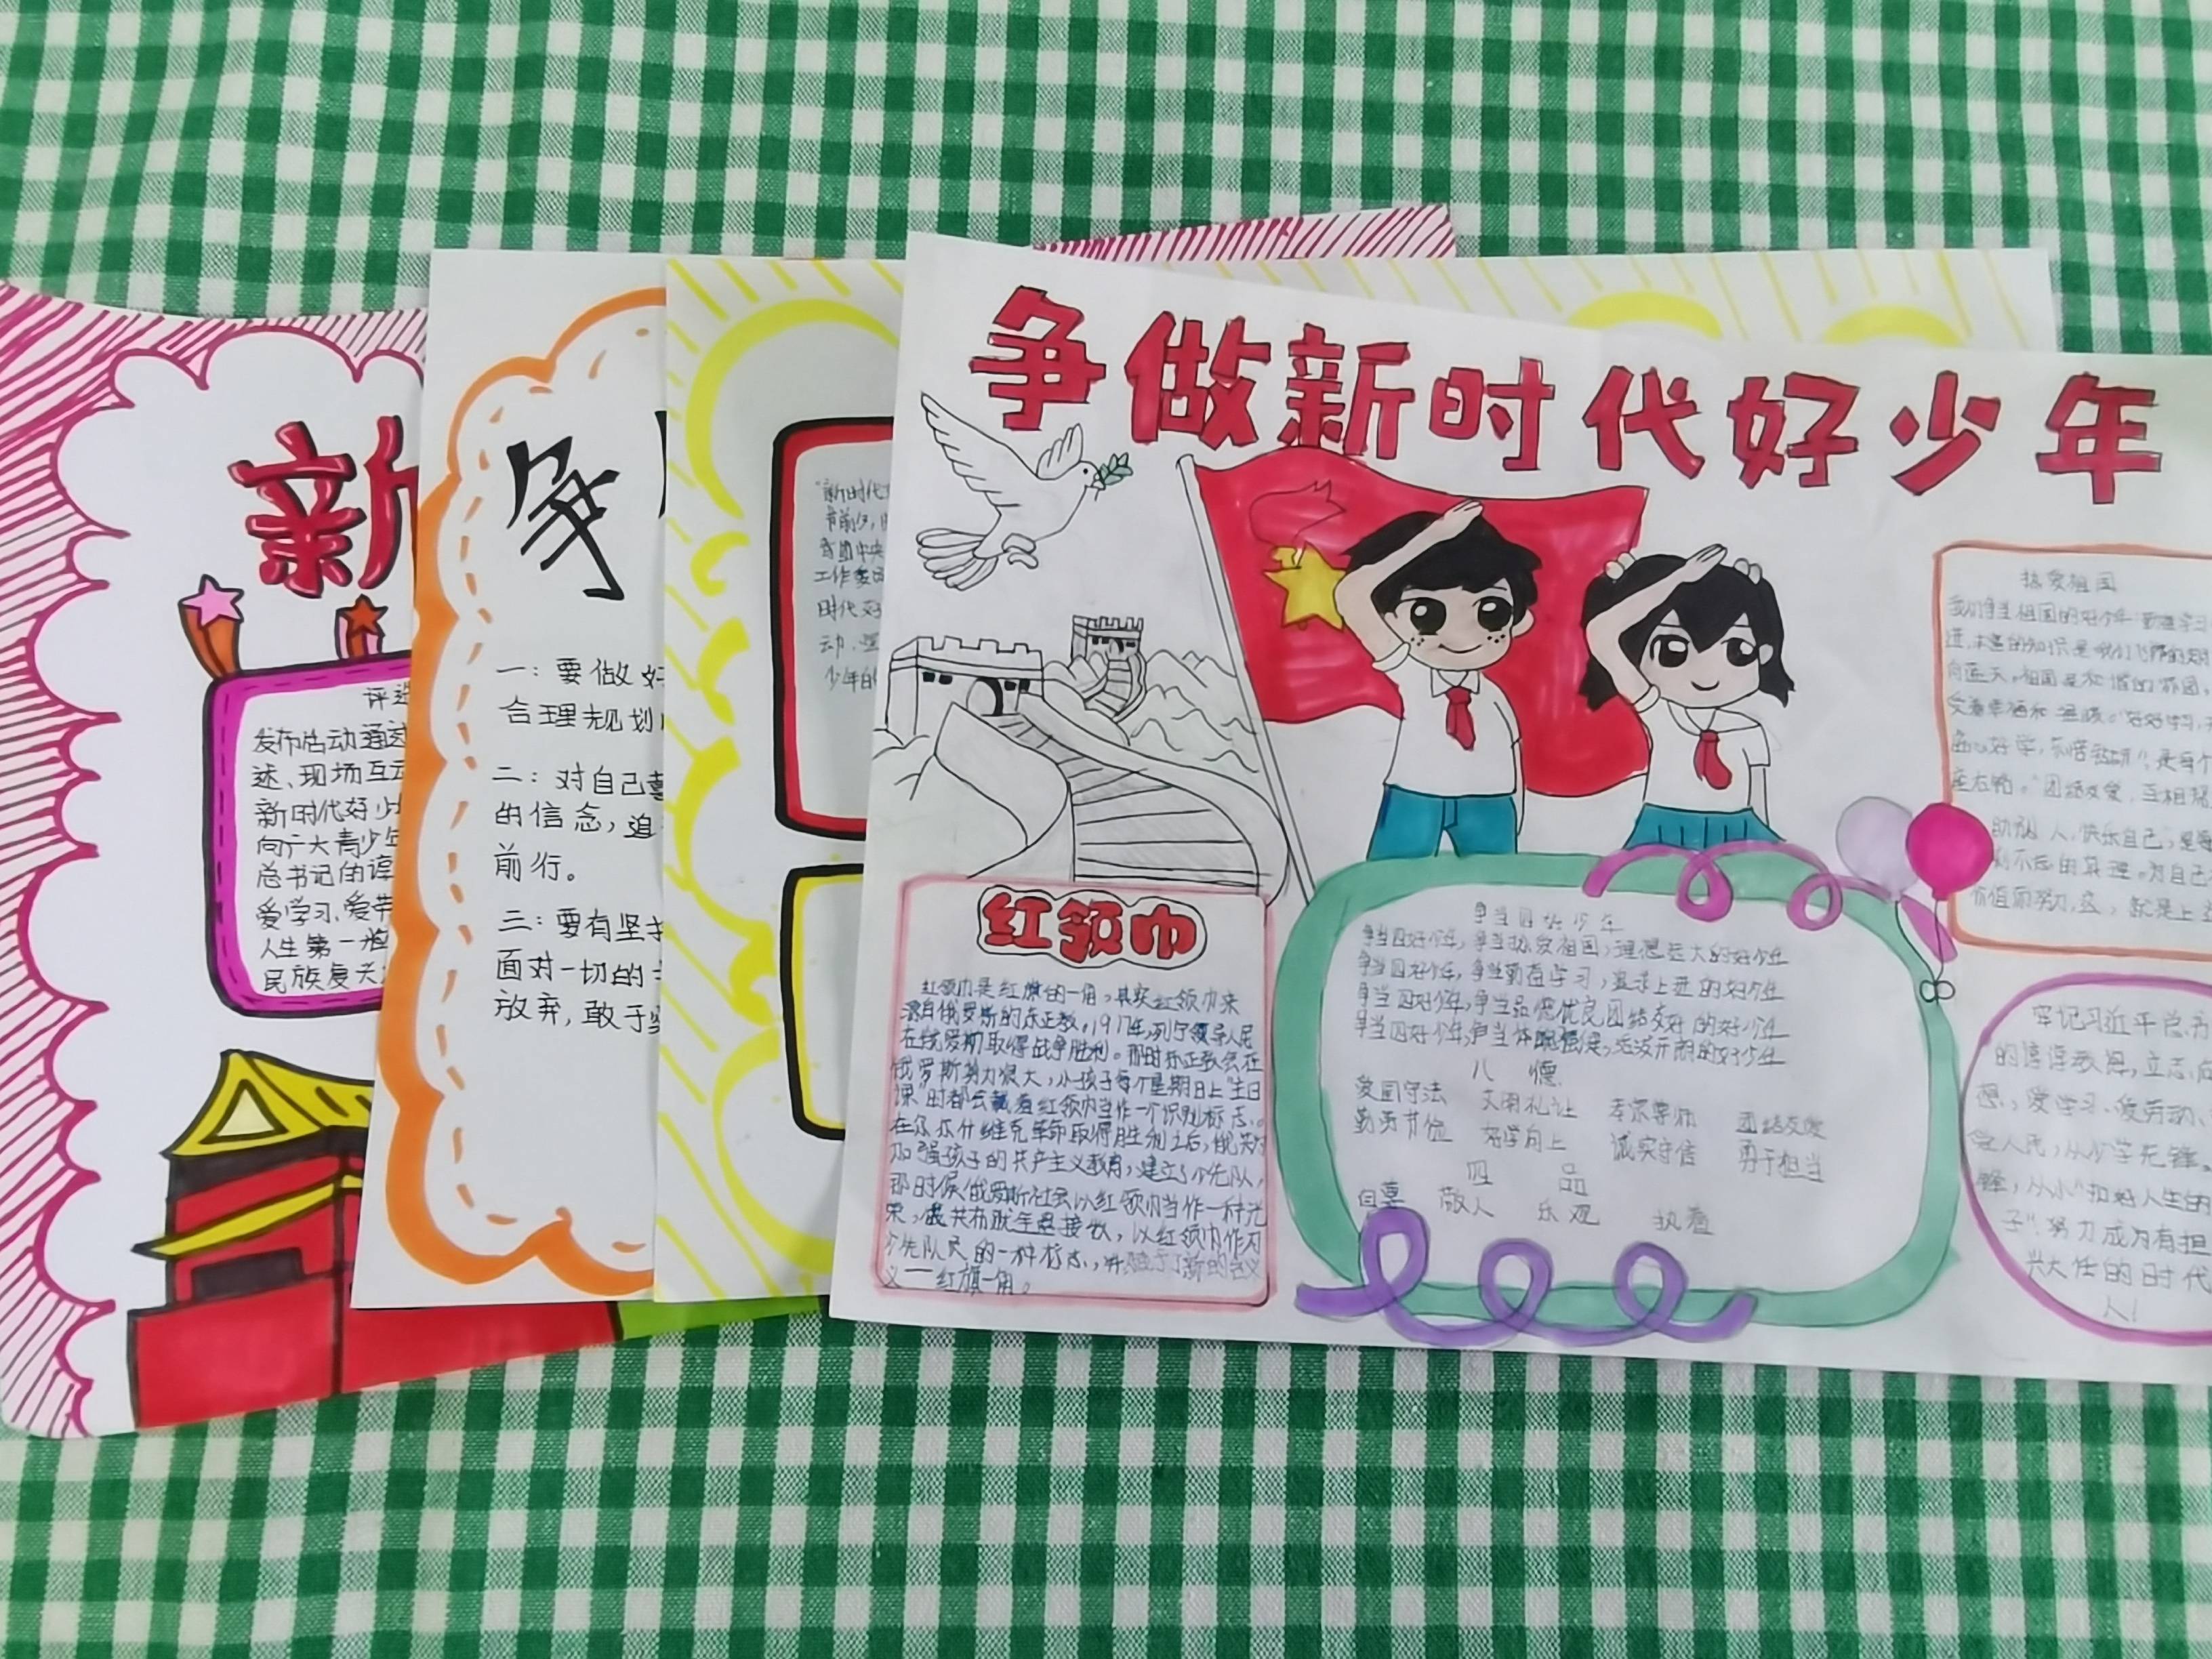 新
评选
发布启动通过
述、现场互动
新时代好少
向广大青少年
总书记的谆
爱学习、爱劳
人生第一
民族复兴
争
一:要做好
合理规划
二:对自己
的信念,追
前行。
三:要有坚
面对一切的
放弃,敢于
"新时代
节前夕,
工作委
时代好
动,
少年的
争做新时代好少年
红领巾
红领巾是红旗的一角,其实红领巾来
源自俄罗斯的东正教。1917年,列宁领导人民
在俄罗斯取得战争胜利。那时东正教会在
俄罗斯势力很大,小孩子每个星期日上"主日
课"时都会戴着红领巾当作一个识别标志。
在布尔什维克革命取得胜利之后,俄共为
加强孩子的共产主义教育,建立了少先队,
那时候俄罗斯社会以红领巾当作一种光
荣,俄共布就年愿接纳,以红领巾作为
少先队员的一种标志,并赋予了新的含义
义——红旗一角。
争当四好少年
争当四好少年,争当热爱祖国,理想远大的好少年
争当四好少年,争当勤奋学习,追求上进的好少年
争当四好少年,争当品德优良,团结友好的好少年
争当四好少年,争当体魄强健,活泼开朗的好少年
八 德
爱国守法 文明礼让 孝亲尊师 团结友爱
勤劳节俭 好学向上 诚实守信 勇于担当
四 品
自尊 敬人 乐观 执着
热爱祖国
我们争当祖国的好少年
进,丰富的知识是我们飞翔的
向蓝天。祖国是和谐的花园,
受着幸福和温暖。"好好学习,
虚心好学,不惜钻研",是每个
座右铭。"团结友爱,互相帮
助别人,快乐自己,是
刻不忘的真理。为自己
价值而努力,这,就是上
牢记习近平总书
的谆谆教思,立志
想,爱学习、爱劳动、
从小学先锋、
锋,从小"扣好人生的
子",努力成为有担
兴大任的时代
人!